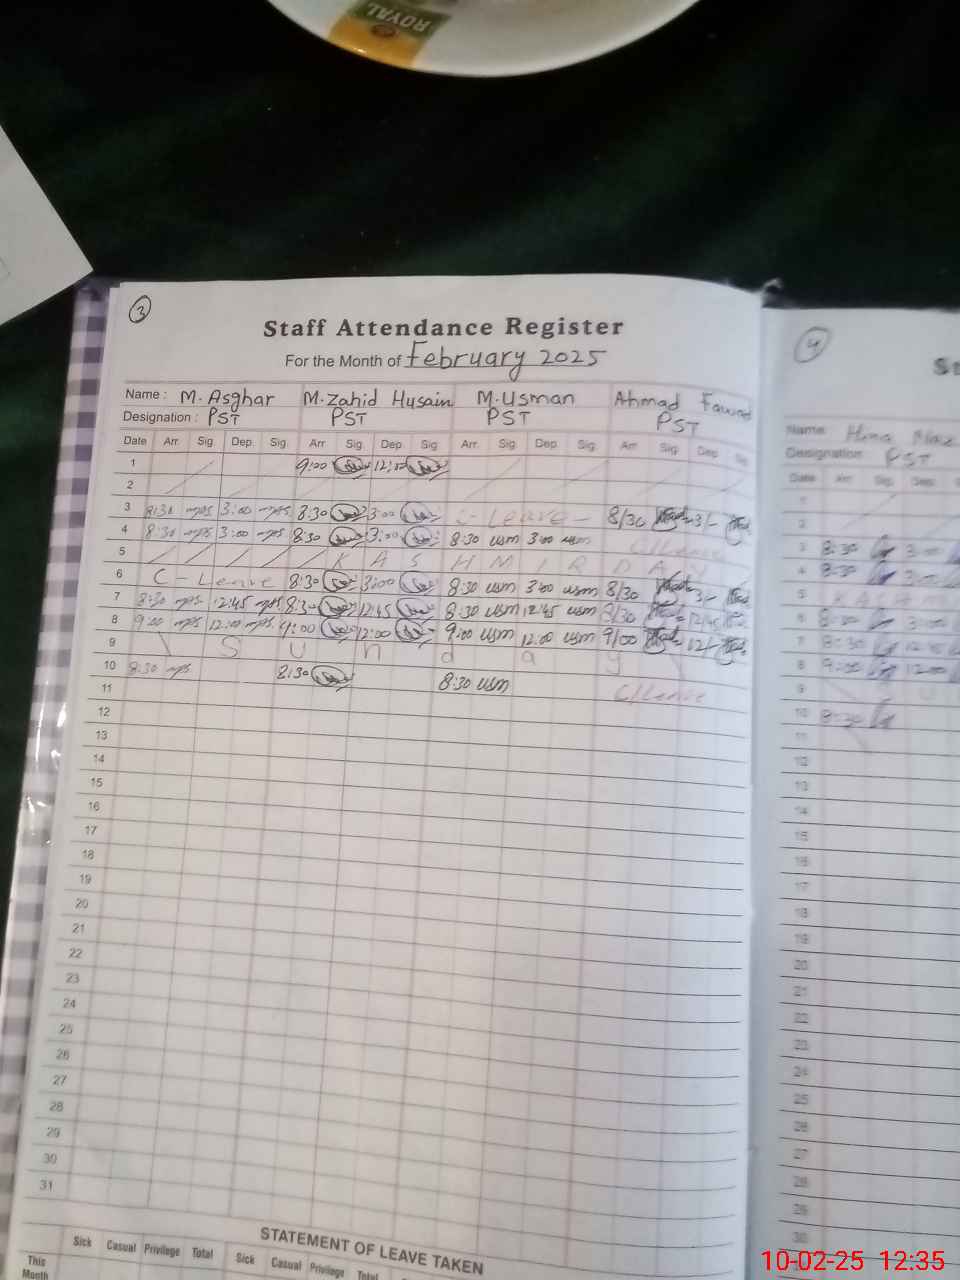 ROYAL
3
Staff Attendance Register
For the Month of February 2025
4
St
Name : M. Asghar M. Zahid Husain M. Usman Ahmad Fawad
Designation : PST PST PST PST
Name: Hina Niaz
Designation : PST
Date Arr. Sig. Dep. Sig. Arr Sig. Dep. Sig. Arr. Sig. Dep. Sig. Arr. Sig. Dep. Sig.
Date Arr. Sig. Dep.
1 9:00 12:00
2
3 8:30 mps 3:00 mps 8:30 3:00 C-Leave- 8/30 3/-
4 8:30 mps 3:00 mps 8:30 3:00 8:30 usm 3:00 usm C/Leave
5 K A S H M I R D A Y
6 C-Leave 8:30 3:00 8:30 usm 3:00 usm 8/30 3/-
7 8:30 mps 12:45 mps 8:30 12:45 8:30 usm 12:45 usm 8/30 12/45
8 9:00 mps 12:00 mps 9:00 12:00 9:00 usm 12:00 usm 9/00 12/-
9 S u n d a y
10 8:30 mps 8:30 8:30 usm C/Leave
11
12
13
14
15
16
17
18
19
20
21
22
23
24
25
26
27
28
29
30
31
1
2
3 8:30 3:00
4 8:30 3:00
5
6 8:30 3:00
7 8:30 12:45
8 9:00 12:00
9
10 8:30
11
12
13
14
15
16
17
18
19
20
21
22
23
24
25
26
27
28
29
30
STATEMENT OF LEAVE TAKEN
Sick Casual Privilege Total Sick Casual Privilege Total
This
Month
10-02-25 12:35